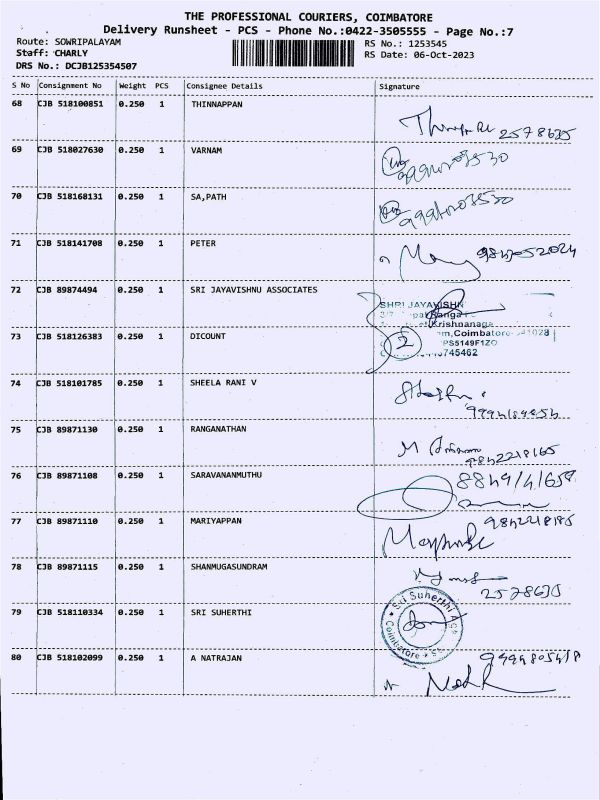 THE PROFESSIONAL COURIERS, COIMBATORE
Delivery Runsheet - PCS - Phone No.:0422-3505555 - Page No.:7
Route: SOWRIPALAYAM RS No.: 1253545
Staff: CHARLY RS Date: 06-Oct-2023
DRS No.: DCJB125354507
S No Consignment No Weight PCS Consignee Details Signature
68 CJB 518100851 0.250 1 THINNAPPAN
2578635
69 CJB 518027630 0.250 1 VARNAM
70 CJB 518168131 0.250 1 SA,PATH
71 CJB 518141708 0.250 1 PETER
72 CJB 89874494 0.250 1 SRI JAYAVISHNU ASSOCIATES
SHRI JAYAVISHN
Krishnanaga
73 CJB 518126383 0.250 1 DICOUNT
2 Coimbatore 641028
PS5149F1ZO
745462
74 CJB 518101785 0.250 1 SHEELA RANI V
75 CJB 89871130 0.250 1 RANGANATHAN
9842218165
76 CJB 89871108 0.250 1 SARAVANANMUTHU
77 CJB 89871110 0.250 1 MARIYAPPAN
78 CJB 89871115 0.250 1 SHANMUGASUNDRAM
2578635
79 CJB 518110334 0.250 1 SRI SUHERTHI
Sri Suherthi
Coimbatore
80 CJB 518102099 0.250 1 A NATRAJAN